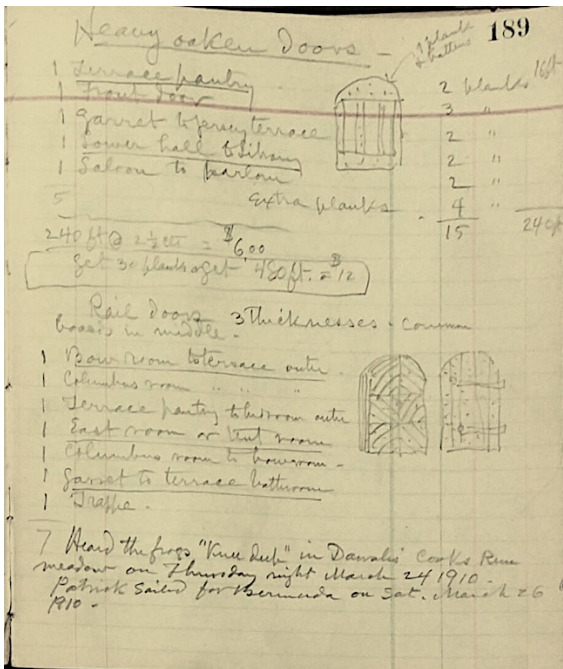 189
Heavy oaken Doors -
1 plank
& battens
1 Terrace pantry 2 planks 16ft
1 Front door 3 "
1 Garret to terrace 2 "
1 Lower hall to Library 2 "
1 Saloon to parlour 2 "
5 Extra planks 4 "
15 240ft
240 ft @ 2½ cts = $6.00
Get 30 planks & get 480 ft. = $12
Rail Doors 3 Thicknesses - common
boards in middle.
1 Bow room to terrace outer.
1 Columbus room " " "
1 Terrace pantry to bedroom outer
1 East room or
1 Columbus room to bow room -
1 Garret to terrace bathroom
1 Trappe.
7 Heard the frogs "Knee deep" in Cooks Run
meadow on Thursday night March 24 1910.
Patrick Sailed for Bermuda on Sat. March 26
1910 -